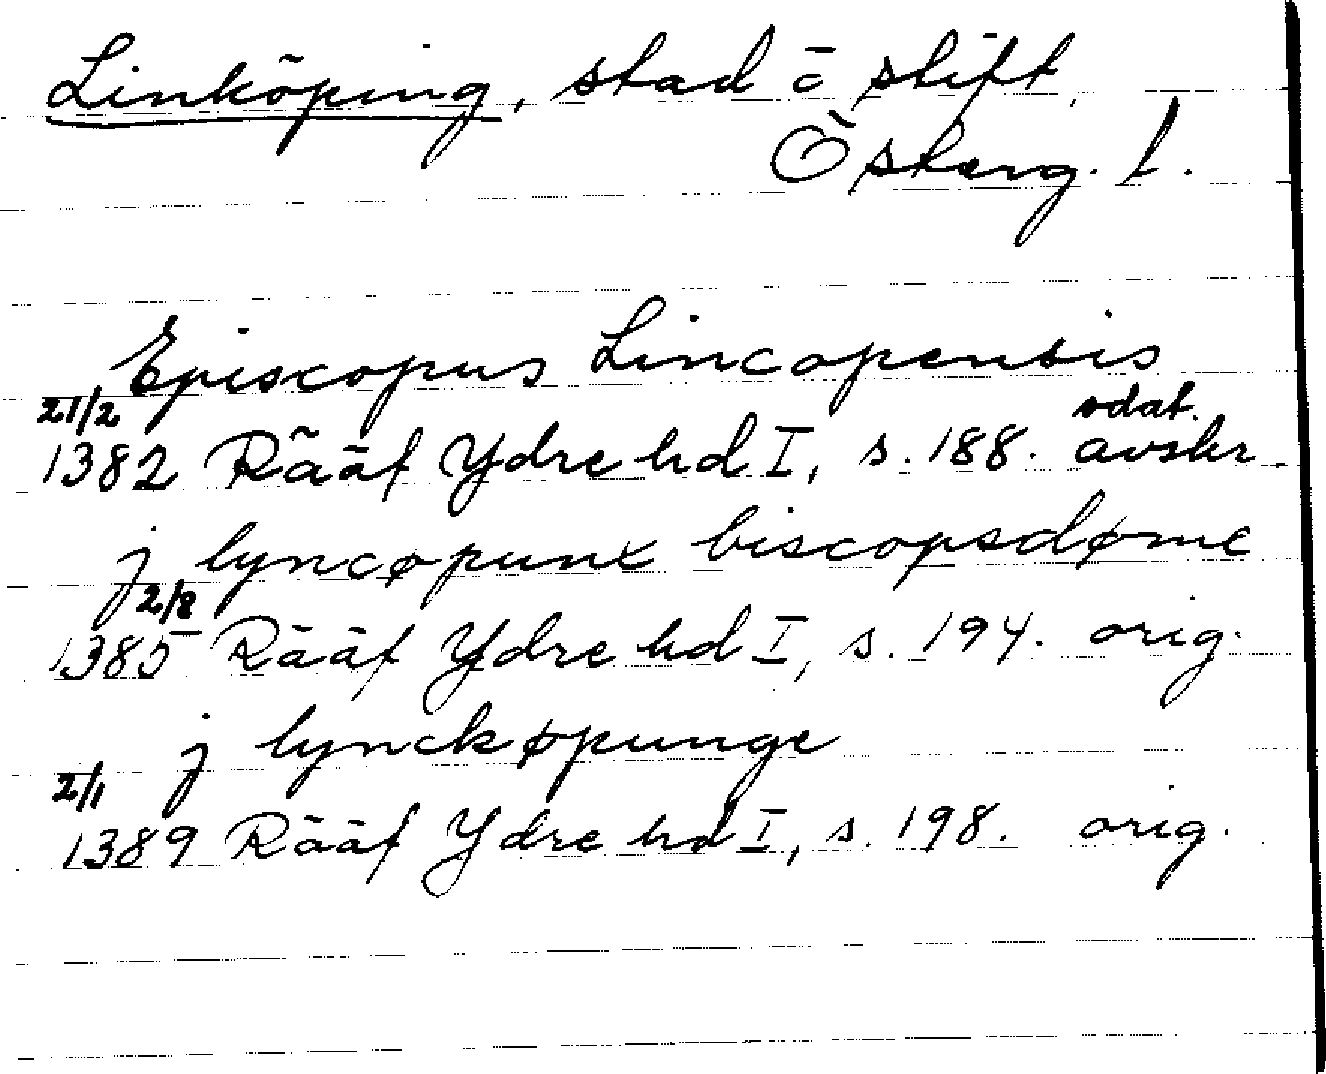 Linköping, stad o stift,
Österg. l.
Episcopus Lincopensis
21/2
1382 Rääf Ydre hd I, s. 188. odat. avskr.
j lyncøpunx biscopsdøme
2/8
1385 Rääf Ydre hd I, s. 194. orig.
j lynckøpunge
2/1
1389 Rääf Ydre hd I, s. 198. orig.